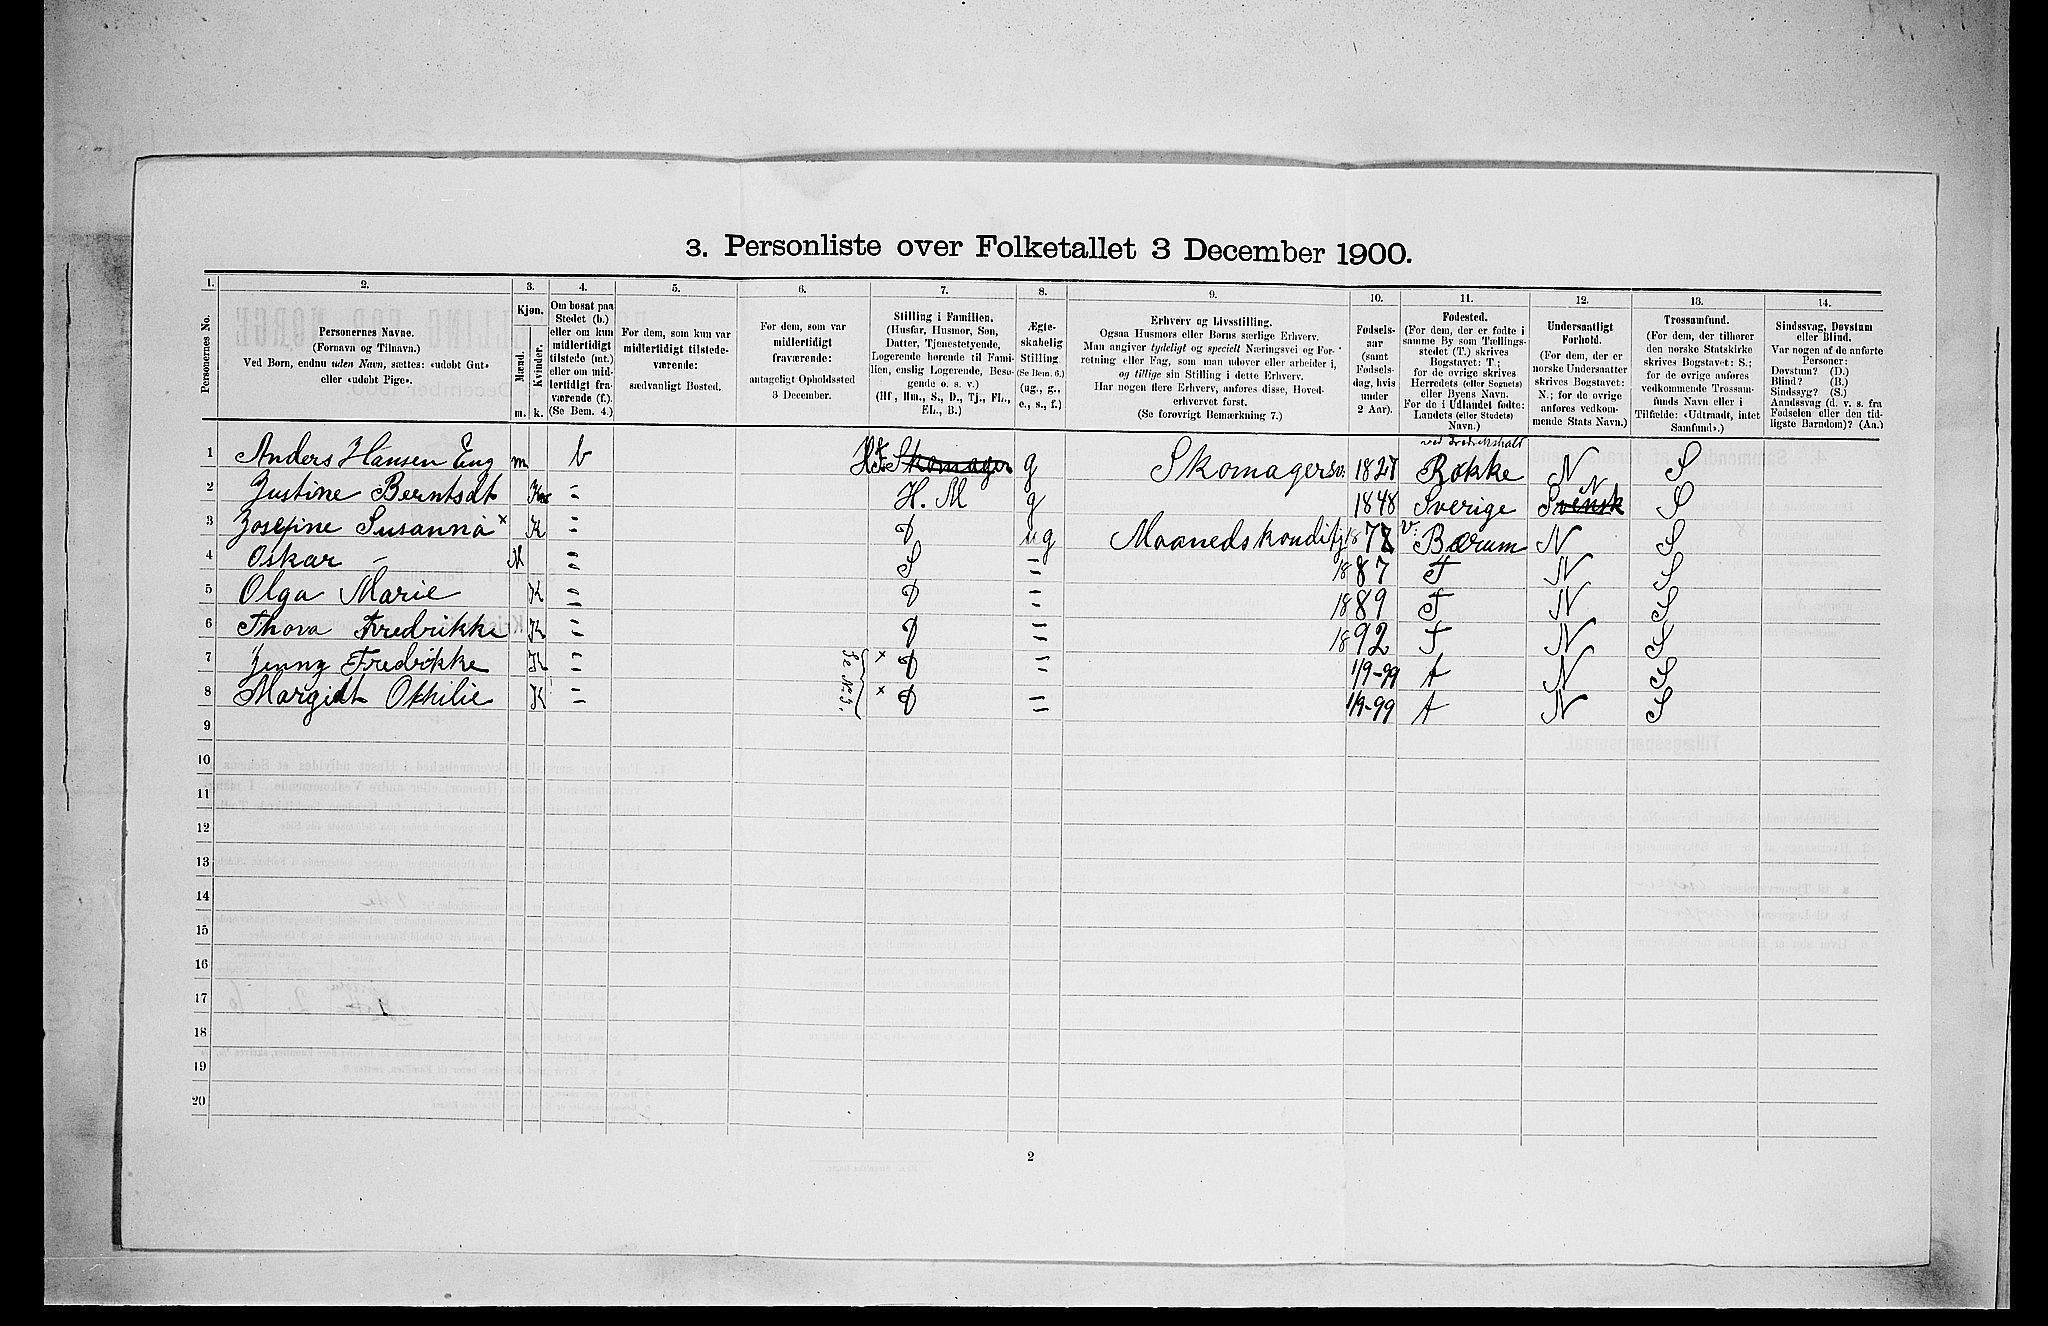 3. Personliste over Folketallet 3 December 1900.
1. 2. 3. 4. 5. 6. 7. 8. 9. 10. 11. 12. 13. 14.
Personernes No.
Personernes Navne.
(Fornavn og Tilnavn.)
Ved Børn, endnu uden Navn, sættes: «udøbt Gut»
eller «udøbt Pige».
Kjøn.
Mænd. Kvinder.
m. k.
Om bosat paa
Stedet (b.)
eller om kun
midlertidigt
tilstede (mt.)
eller om mid-
lertidigt fra-
værende (f.).
(Se Bem. 4.)
For dem, som kun var
midlertidigt tilstede-
værende:
sædvanligt Bosted.
For dem, som var
midlertidigt
fraværende:
antageligt Opholdssted
3 December.
Stilling i Familien.
(Husfar, Husmor, Søn,
Datter, Tjenestetyende,
Logerende hørende til Fami-
lien, enslig Logerende, Besø-
gende o. s. v.)
(Hf., Hm., S., D., Tj., FL.,
EL., B.)
Ægte-
skabelig
Stilling.
(Se Bem. 6.)
(ug., g.,
e., s., f.)
Erhverv og Livsstilling.
Ogsaa Husmors eller Børns særlige Erhverv.
Man angiver tydeligt og specielt Næringsvei og For-
retning eller Fag, som man udøver eller arbeider i,
og tillige sin Stilling i dette Erhverv.
Har nogen flere Erhverv, anføres disse, Hoved-
erhvervet først.
(Se forøvrigt Bemærkning 7.)
Fødsels-
aar
(samt
Fødsels-
dag, hvis
under
2 Aar).
Fødested.
(For dem, der er fødte i
samme By som Tællings-
stedet (T.) skrives
Bogstavet: T.;
for de øvrige skrives
Herredets (eller Sognets)
eller Byens Navn.
For de i Udlandet fødte:
Landets (eller Stedets)
Navn.)
Undersaatligt
Forhold.
(For dem, der er
norske Undersaatter
skrives Bogstavet:
N.; for de øvrige
anføres vedkom-
mende Stats Navn.)
Trossamfund.
(For dem, der tilhører
den norske Statskirke
skrives Bogstavet: S.;
for de øvrige anføres
vedkommende Trossam-
funds Navn eller i
Tilfælde: «Udtraadt, intet
Samfund».)
Sindssvag, Døvstum
eller Blind.
Var nogen af de anførte
Personer:
Døvstum? (D.)
Blind? (B.)
Sindssyg? (S.)
Aandssvag (d. v. s. fra
Fødselen eller den tid-
ligste Barndom)? (Aa.)
1 Anders Hansen Eng m b H.f. Skomager g Skomagersv. 1827 ved Fredrikshald Rokke N S
2 Justine Berntsdt K - H. M g 1848 Sverige Svensk N S
3 Josefine Susanna x K - D ug Maanedskonditj 1872 V. Bærum N S
4 Oskar - M = S = 1887 T N S
5 Olga Marie K = D = 1889 T N S
6 Thova Fredrikke K = D = 1892 T N S
7 Jenny Fredrikke K = Se No. 3. x D = 1/9-99 A N S
8 Margidt Othilie K = x D = 1/9-99 A N S
9
10
11
12
13
14
15
16
17
18
19
20
2